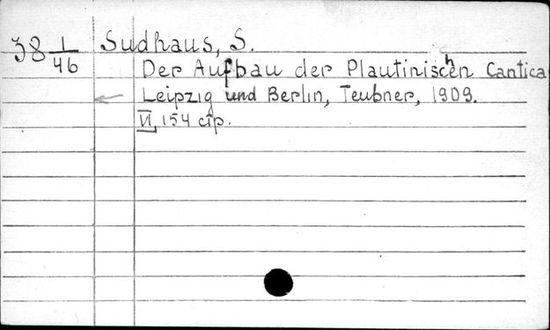 38 1/46 Sudhaus, S.
Der Aufbau der Plautinischen Cantica
Leipzig und Berlin, Teubner, 1909.
VI, 154 стр.